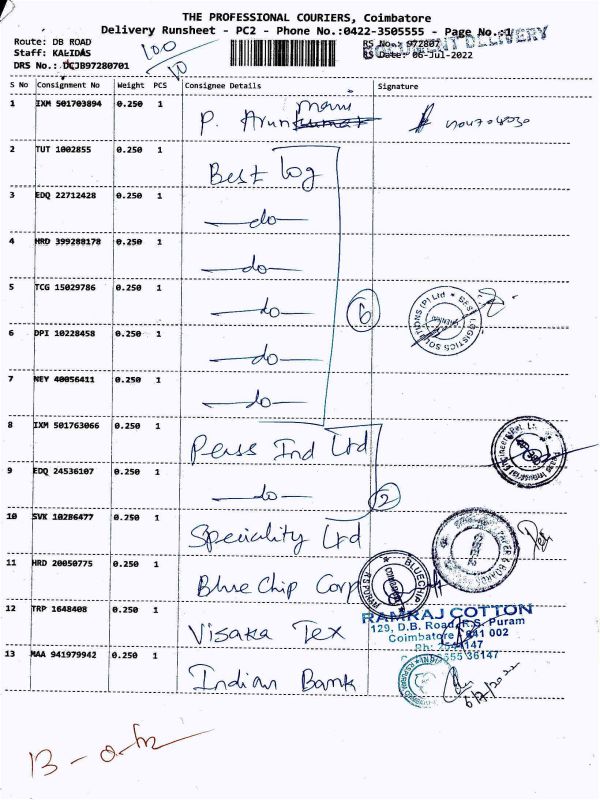 THE PROFESSIONAL COURIERS, Coimbatore
Delivery Runsheet - PC2 - Phone No.:0422-3505555 - Page No.:1/
DOCUMENT DELIVERY
Route: DB ROAD
RS No.: 972807
Staff: KALIDAS
RS Date: 06-Jul-2022
DRS No.: DCJB97280701
100
10
S No Consignment No Weight PCS Consignee Details Signature
1 IXM 501703894 0.250 1 P. Arun mani
2 TUT 1002855 0.250 1 Best log
3 EDQ 22712428 0.250 1 do
4 HRD 399288178 0.250 1 do
5 TCG 15029786 0.250 1 do
6
6 DPI 10228458 0.250 1 do
7 NEY 40056411 0.250 1 do
8 IXM 501763066 0.250 1 Perss Ind Ltd
9 EDQ 24536107 0.250 1 do
2
10 SVK 10286477 0.250 1 Speciality Ltd
11 HRD 20050775 0.250 1 Blue Chip Corp
BLUECHIP
12 TRP 1648408 0.250 1 Visaka Tex
RAMRAJ COTTON
129, D.B. Road, R.S. Puram
Coimbatore 641 002
13 MAA 941979942 0.250 1 Indian Bank
6/7/2022
13 -